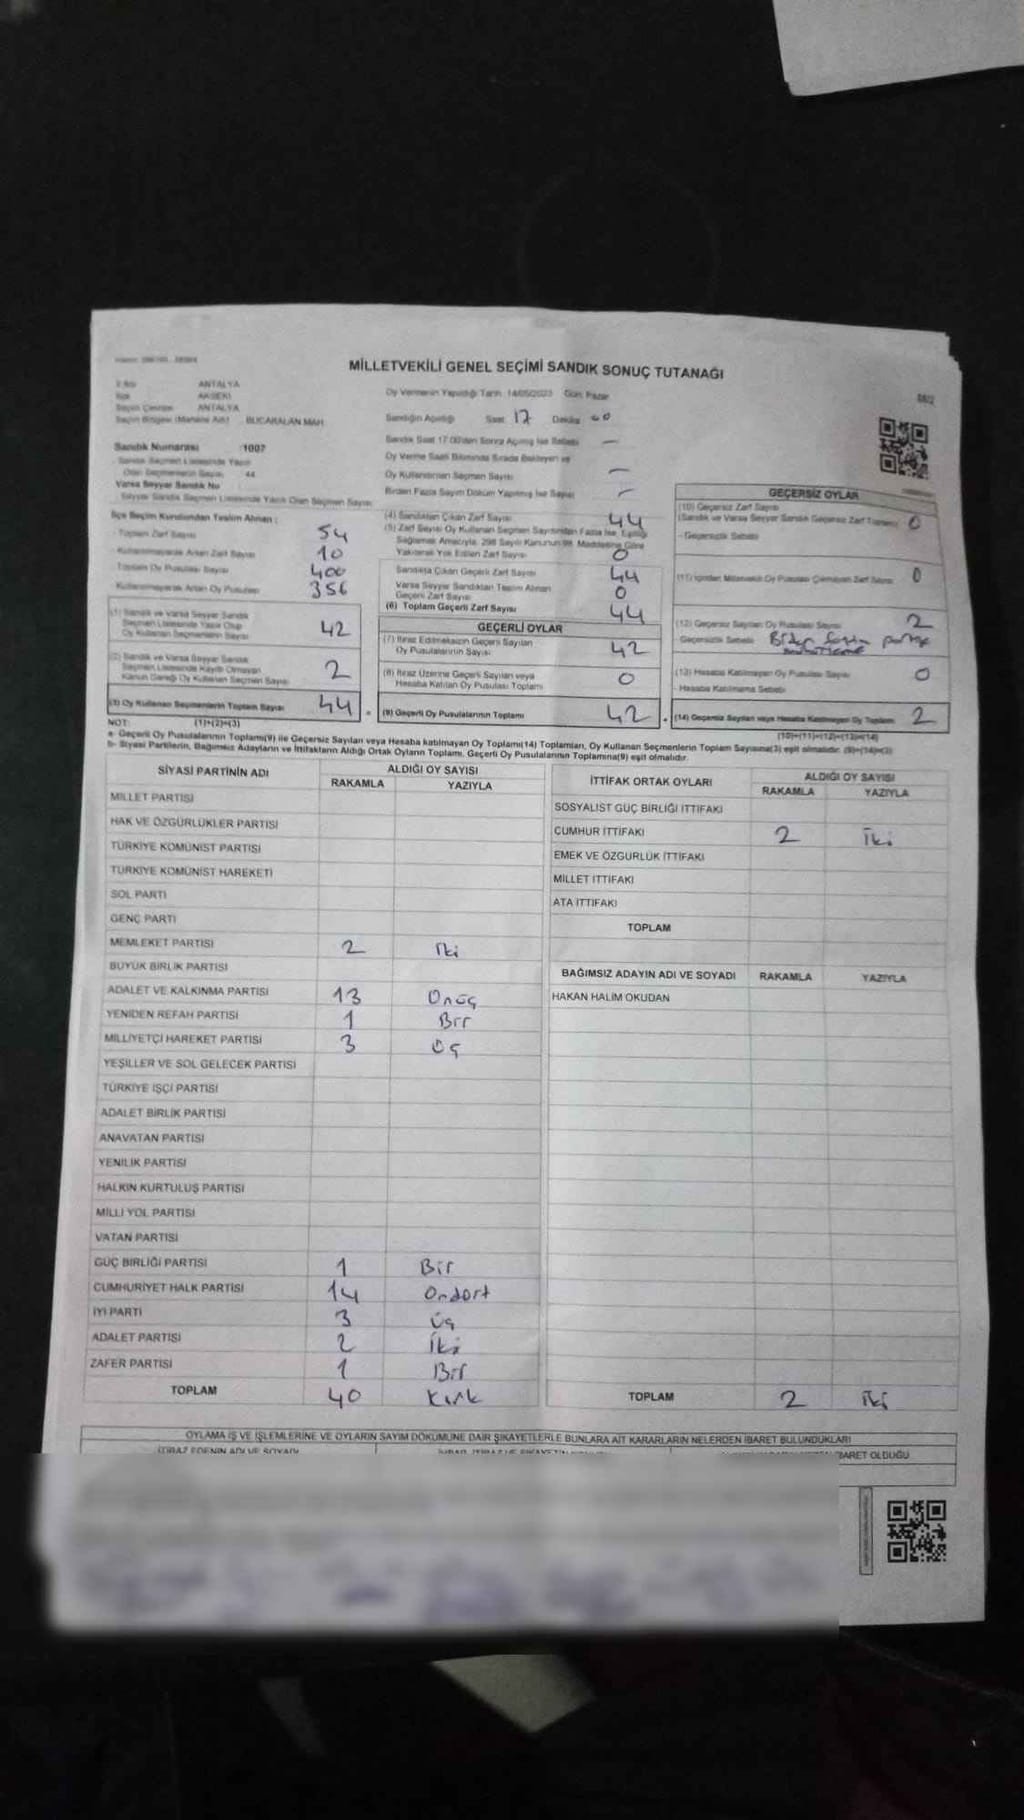 MİLLETVEKİLİ GENEL SEÇİMİ SANDIK SONUÇ TUTANAĞI
ANTALYA
AKSEKİ
ANTALYA
BUCAKALAN MAH.
Sandık Numarası 1007
44
Varsa Seyyar Sandık No
Oy Vermenin Yapıldığı Tarih 14/05/2023 Gün: Pazar
Sandığın Açıldığı Saat 17 Dakika 00
Sandık Saat 17:00'den Sonra Açılmış İse Sebebi —
Oy Verme Saati Bitiminde Sırada Bekleyen ve
Oy Kullandırılan Seçmen Sayısı —
Birden Fazla Sayım Döküm Yapılmış İse Sayısı —
İlçe Seçim Kurulundan Teslim Alınan :
Toplam Zarf Sayısı 54
Kullanılmayarak Artan Zarf Sayısı 10
Toplam Oy Pusulası Sayısı 400
Kullanılmayarak Artan Oy Pusulası 356
(1) Sandık ve Varsa Seyyar Sandık
Seçmen Listesinde Yazılı Olup
Oy Kullanan Seçmenlerin Sayısı 42
(2) Sandık ve Varsa Seyyar Sandık
Seçmen Listesinde Kayıtlı Olmayan
Kanun Gereği Oy Kullanan Seçmen Sayısı 2
(3) Oy Kullanan Seçmenlerin Toplam Sayısı 44
(1)+(2)=(3)
(4) Sandıktan Çıkan Zarf Sayısı 44
(5) Zarf Sayısı Oy Kullanan Seçmen Sayısından Fazla İse, Eşitliği
Sağlamak Amacıyla, 298 Sayılı Kanunun 98. Maddesine Göre
Yakılarak Yok Edilen Zarf Sayısı 0
Sandıkta Çıkan Geçerli Zarf Sayısı 44
Varsa Seyyar Sandıktan Teslim Alınan
Geçerli Zarf Sayısı 0
(6) Toplam Geçerli Zarf Sayısı 44
GEÇERLİ OYLAR
(7) İtiraz Edilmeksizin Geçerli Sayılan
Oy Pusulalarının Sayısı 42
(8) İtiraz Üzerine Geçerli Sayılan veya
Hesaba Katılan Oy Pusulası Toplamı 0
(9) Geçerli Oy Pusulalarının Toplamı 42
GEÇERSİZ OYLAR
(10) Geçersiz Zarf Sayısı
(Sandık ve Varsa Seyyar Sandık Geçersiz Zarf Toplamı) 0
- Geçersizlik Sebebi
(11) İçinden Milletvekili Oy Pusulası Çıkmayan Zarf Sayısı 0
(12) Geçersiz Sayılan Oy Pusulası Sayısı 2
- Geçersizlik Sebebi
(13) Hesaba Katılmayan Oy Pusulası Sayısı 0
- Hesaba Katılmama Sebebi
(14) Geçersiz Sayılan veya Hesaba Katılmayan Oy Toplamı 2
(10)+(11)+(12)+(13)=(14)
NOT:
a- Geçerli Oy Pusulalarının Toplamı(9) ile Geçersiz Sayılan veya Hesaba katılmayan Oy Toplamı(14) Toplamları, Oy Kullanan Seçmenlerin Toplam Sayısına(3) eşit olmalıdır. (9)+(14)=(3)
b- Siyasi Partilerin, Bağımsız Adayların ve İttifakların Aldığı Ortak Oyların Toplamı, Geçerli Oy Pusulalarının Toplamına(9) eşit olmalıdır.
SİYASİ PARTİNİN ADI ALDIĞI OY SAYISI
RAKAMLA YAZIYLA
MİLLET PARTİSİ
HAK VE ÖZGÜRLÜKLER PARTİSİ
TÜRKİYE KOMÜNİST PARTİSİ
TÜRKİYE KOMÜNİST HAREKETİ
SOL PARTİ
GENÇ PARTİ
MEMLEKET PARTİSİ 2 İki
BÜYÜK BİRLİK PARTİSİ
ADALET VE KALKINMA PARTİSİ 13 Onüç
YENİDEN REFAH PARTİSİ 1 Bir
MİLLİYETÇİ HAREKET PARTİSİ 3 Üç
YEŞİLLER VE SOL GELECEK PARTİSİ
TÜRKİYE İŞÇİ PARTİSİ
ADALET BİRLİK PARTİSİ
ANAVATAN PARTİSİ
YENİLİK PARTİSİ
HALKIN KURTULUŞ PARTİSİ
MİLLİ YOL PARTİSİ
VATAN PARTİSİ
GÜÇ BİRLİĞİ PARTİSİ 1 Bir
CUMHURİYET HALK PARTİSİ 14 Ondört
İYİ PARTİ 3 üç
ADALET PARTİSİ 2 İki
ZAFER PARTİSİ 1 Bir
TOPLAM 40 Kırk
İTTİFAK ORTAK OYLARI ALDIĞI OY SAYISI
RAKAMLA YAZIYLA
SOSYALİST GÜÇ BİRLİĞİ İTTİFAKI
CUMHUR İTTİFAKI 2 İki
EMEK VE ÖZGÜRLÜK İTTİFAKI
MİLLET İTTİFAKI
ATA İTTİFAKI
TOPLAM
BAĞIMSIZ ADAYIN ADI VE SOYADI RAKAMLA YAZIYLA
HAKAN HALİM OKUDAN
TOPLAM 2 İki
OYLAMA İŞ VE İŞLEMLERİNE VE OYLARIN SAYIM DÖKÜMÜNE DAİR ŞİKAYETLERLE BUNLARA AİT KARARLARIN NELERDEN İBARET BULUNDUKLARI
İTİRAZ EDENİN ADI VE SOYADI
İBARET OLDUĞU